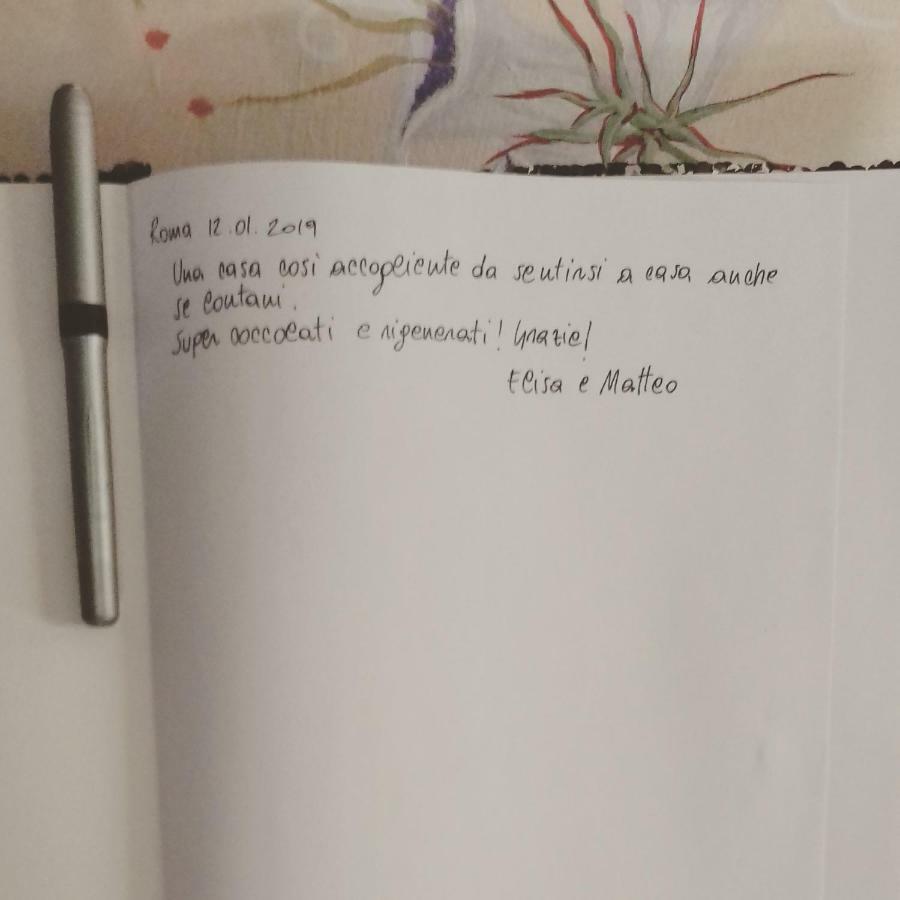 Roma 12.01.2019
Una casa così accogliente da sentirsi a casa anche
se lontani.
Super coccolati e rigenerati! Grazie!
Elisa e Matteo